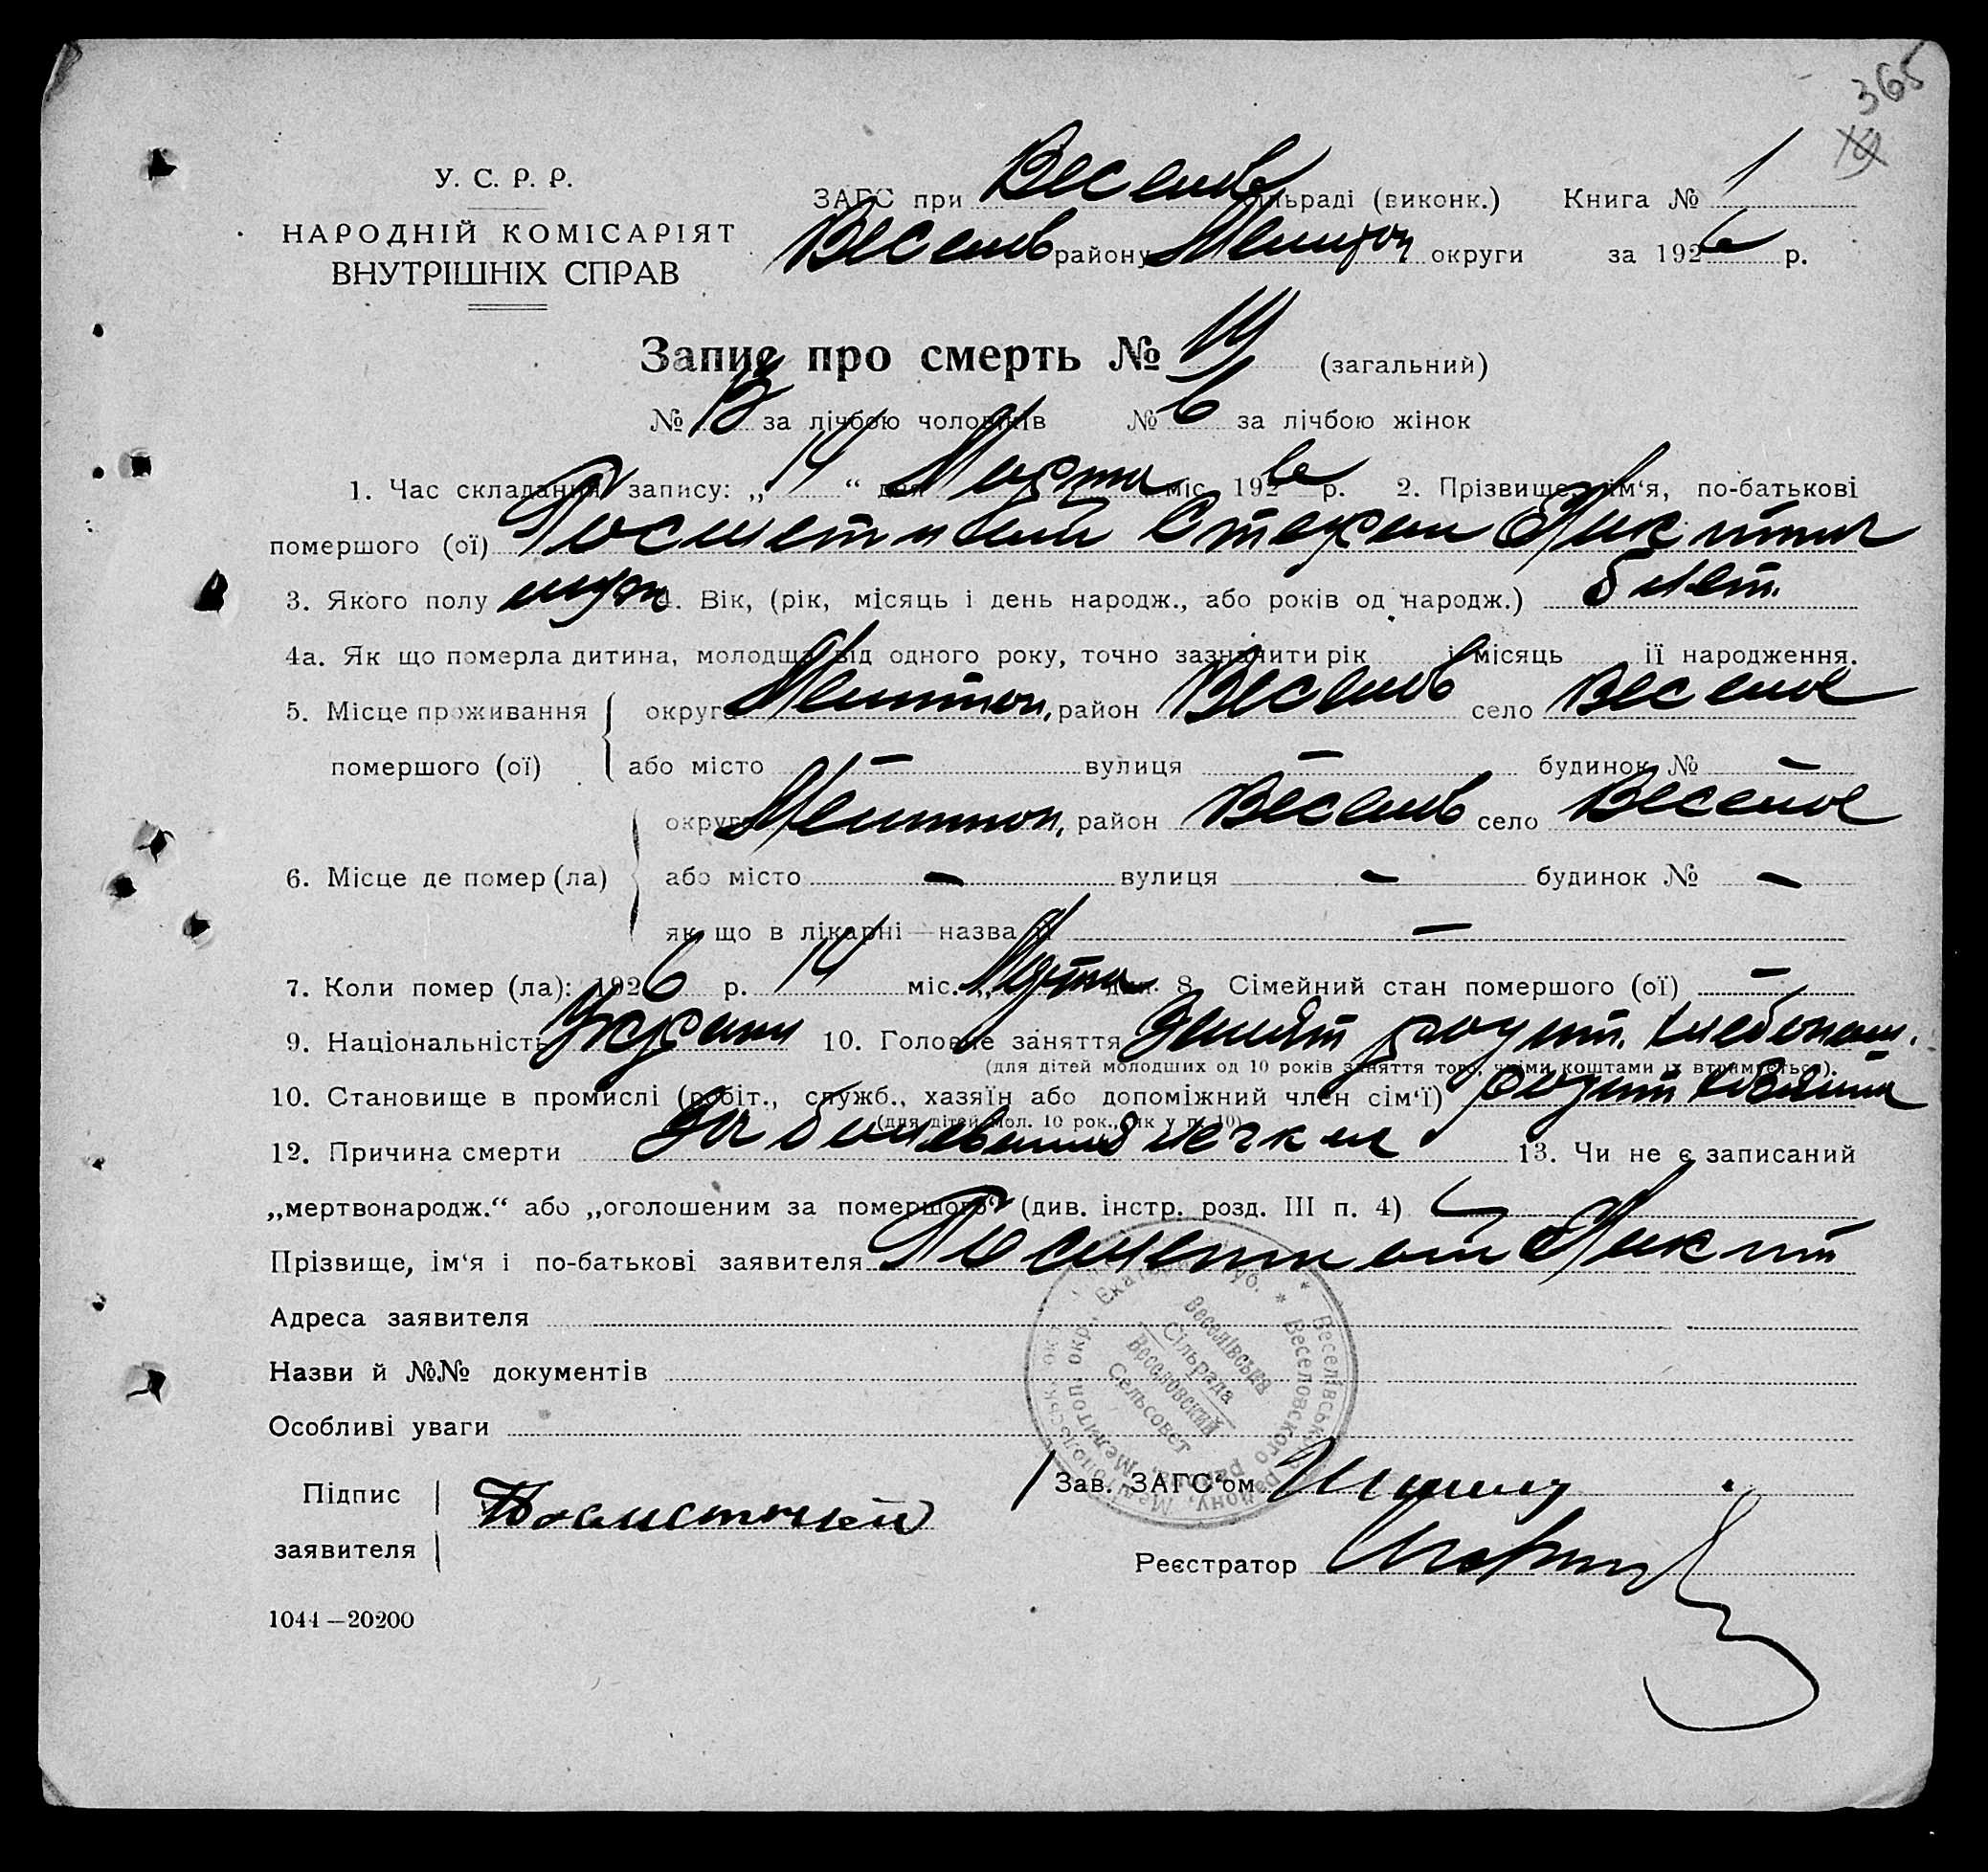 365
У. С. Р. Р.
НАРОДНІЙ КОМІСАРІЯТ
ВНУТРІШНІХ СПРАВ
ЗАГС при Веселов сільраді (виконк.) Книга № 1
Веселов району Мелитоп округи за 1926 р.
Запис про смерть № 19 (загальний)
№ 13 за лічбою чоловіків № 6 за лічбою жінок
1. Час складання запису: „ 14 “ дня Марта міс. 1926 р. 2. Прізвище, ім‘я, по-батькові
помершого (ої) Стефан Никитич
3. Якого полу муж 4. Вік, (рік, місяць і день народж., або років од народж.) 5 лет.
4а. Як що померла дитина, молодша від одного року, точно зазначити рік і місяць її народження.
5. Місце проживання округа Мелитоп, район Веселов село Веселое
помершого (ої) або місто — вулиця — будинок № —
округа Мелитоп, район Веселов село Веселое
6. Місце де помер (ла) або місто — вулиця — будинок № —
як що в лікарні—назва її —
7. Коли помер (ла): 1926 р. 14 міс. „ Марта дня 8. Сімейний стан помершого (ої) —
9. Національність Украин 10. Головне заняття родит. хлебопаш.
(для дітей молодших од 10 років заняття того, чиїми коштами їх втримується).
10. Становище в промислі (робіт., служб., хазяїн або допоміжний член сім‘ї) родит хозяин
(для дітей мол. 10 рок., як у п. 10)
12. Причина смерти Заболевания легких 13. Чи не є записаний
„мертвонародж.“ або „оголошеним за помершого“ (див. інстр. розд. III п. 4)
Прізвище, ім‘я і по-батькові заявителя Никит
Адреса заявителя
Назви й №№ документів
Особливі уваги
Веселівська
Сільрада
Веселовский
Сельсовет
Підпис
заявителя
Зав. ЗАГС‘ом
Реєстратор
1044—20200